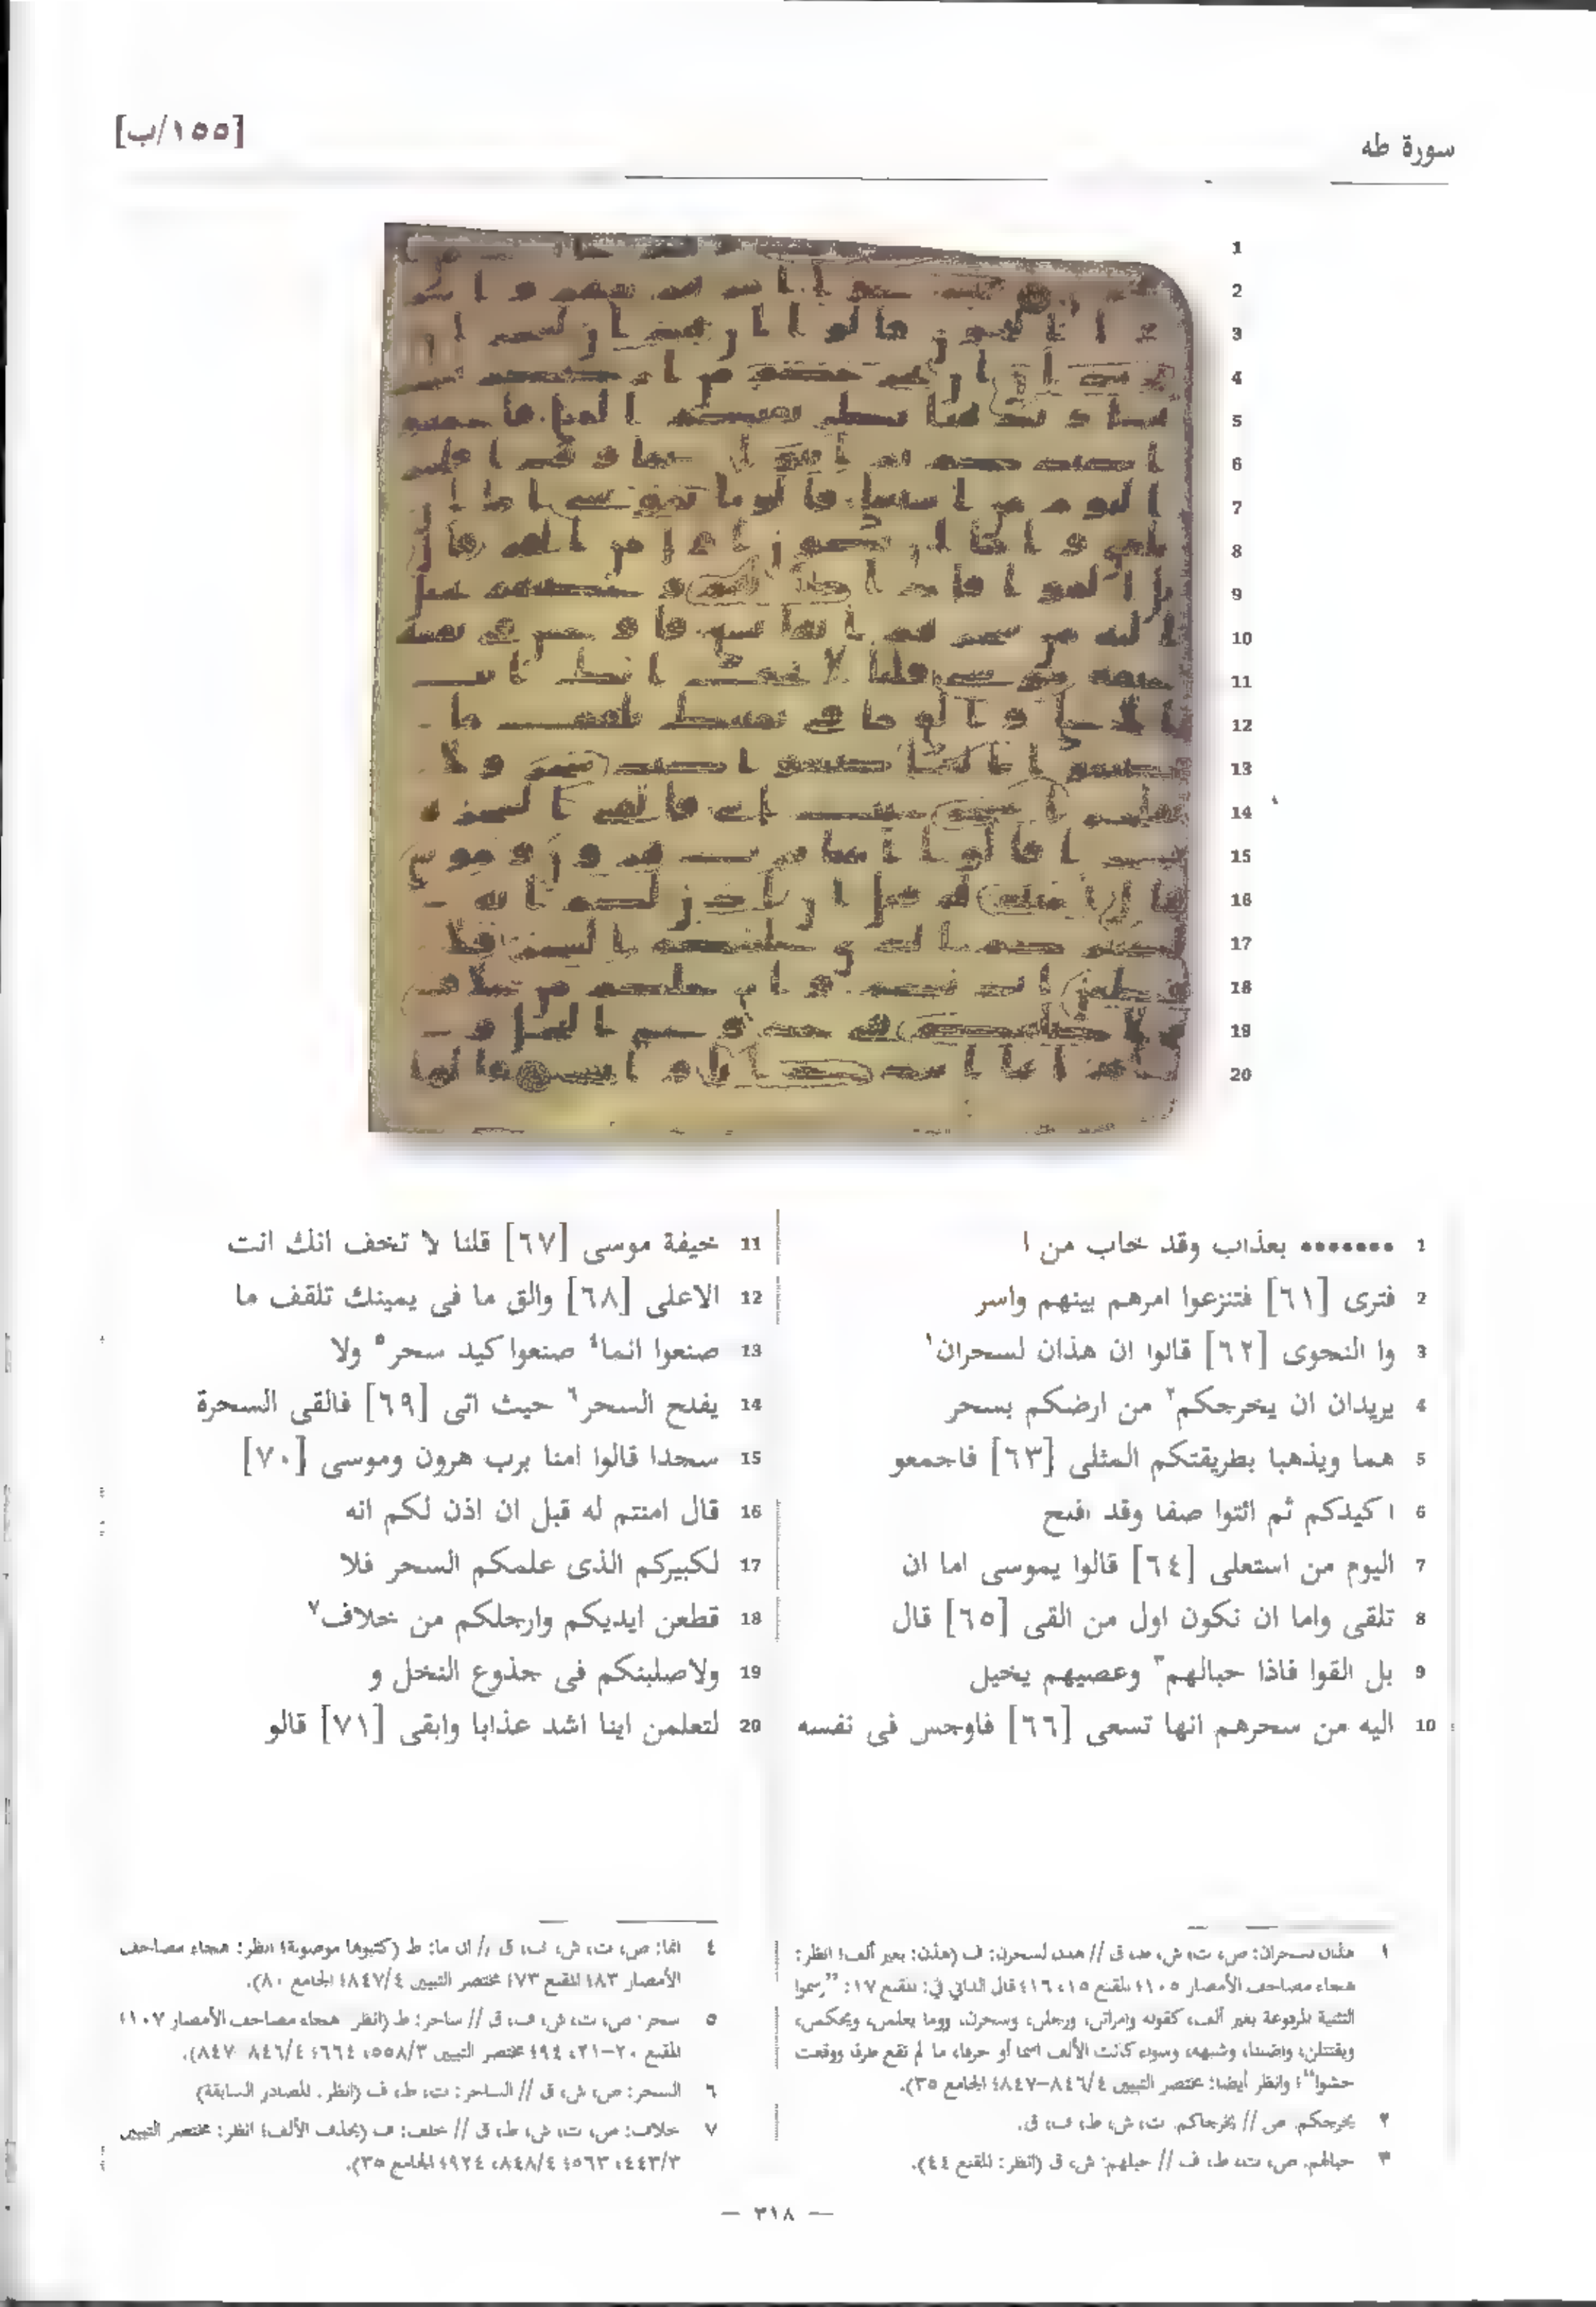 سورة طه
[١٥٥/ب]
1 ••••••• بعذاب وقد خاب من ا
2 فترى [٦١] فتنزعوا امرهم بينهم واسر
3 وا النجوى [٦٢] قالوا ان هذان لسحران١
4 يريدان ان يخرجكم٢ من ارضكم بسحر
5 هما ويذهبا بطريقتكم المثلى [٦٣] فاجمعو
6 ا كيدكم ثم ائتوا صفا وقد افلح
7 اليوم من استعلى [٦٤] قالوا يموسى اما ان
8 تلقى واما ان نكون اول من القى [٦٥] قال
9 بل القوا فاذا حبالهم٣ وعصيهم يخيل
10 اليه من سحرهم انها تسعى [٦٦] فاوجس فى نفسه
11 خيفة موسى [٦٧] قلنا لا تخف انك انت
12 الاعلى [٦٨] والق ما فى يمينك تلقف ما
13 صنعوا انما٤ صنعوا كيد سحر٥ ولا
14 يفلح السحر٦ حيث اتى [٦٩] فالقى السحرة
15 سجدا قالوا امنا برب هرون وموسى [٧٠]
16 قال امنتم له قبل ان اذن لكم انه
17 لكبيركم الذى علمكم السحر فلا
18 قطعن ايديكم وارجلكم من خلاف٧
19 ولاصلبنكم فى جذوع النخل و
20 لتعلمن اينا اشد عذابا وابقى [٧١] قالو
١ هذان لسحران: ص، ت، ش، ط، ق // هذن لسحرن: ف (هذن: بغير ألف؛ انظر:
هجاء مصاحف الأمصار ١٠٥؛ المقنع ١٥، ١٦؛ قال الداني في: المقنع ١٧: "رسموا
التثنية المرفوعة بغير ألف، كقوله وامراتن، ورجلن، وسحرن، وما يعلمن، ويحكمن،
ويقتتلن، واضلنا، وشبهه، وسواء كانت الألف اسما أو حرفا، ما لم تقع طرفا ووقعت
حشوا"؛ وانظر أيضا: مختصر التبيين ٨٤٦/٤-٨٤٧؛ الجامع ٣٥).
٢ يخرجكم: ص // يخرجاكم: ت، ش، ط، ف، ق.
٣ حبالهم: ص، ت، ط، ف // حبلهم: ش، ق (انظر: المقنع ٤٤).
٤ انما: ص، ت، ش، ف، ق // ان ما: ط (كتبوها موصولة؛ انظر: هجاء مصاحف
الأمصار ٨٣؛ المقنع ٧٣؛ مختصر التبيين ٨٤٧/٤؛ الجامع ٨٠).
٥ سحر: ص، ت، ش، ف، ق // ساحر: ط (انظر: هجاء مصاحف الأمصار ١٠٧؛
المقنع ٢٠-٢١، ٩٤؛ مختصر التبيين ٥٥٨/٣، ٦٦٤؛ ٨٤٦/٤، ٨٤٧).
٦ السحر: ص، ش، ق // الساحر: ت، ط، ف (انظر: المصادر السابقة)
٧ خلاف: ص، ت، ش، ط، ق // خلف: ف (بحذف الألف؛ انظر: مختصر التبيين
٤٤٣/٣، ٥٦٣؛ ٨٤٨/٤، ٩٢٤؛ الجامع ٣٥).
— ٣١٨ —